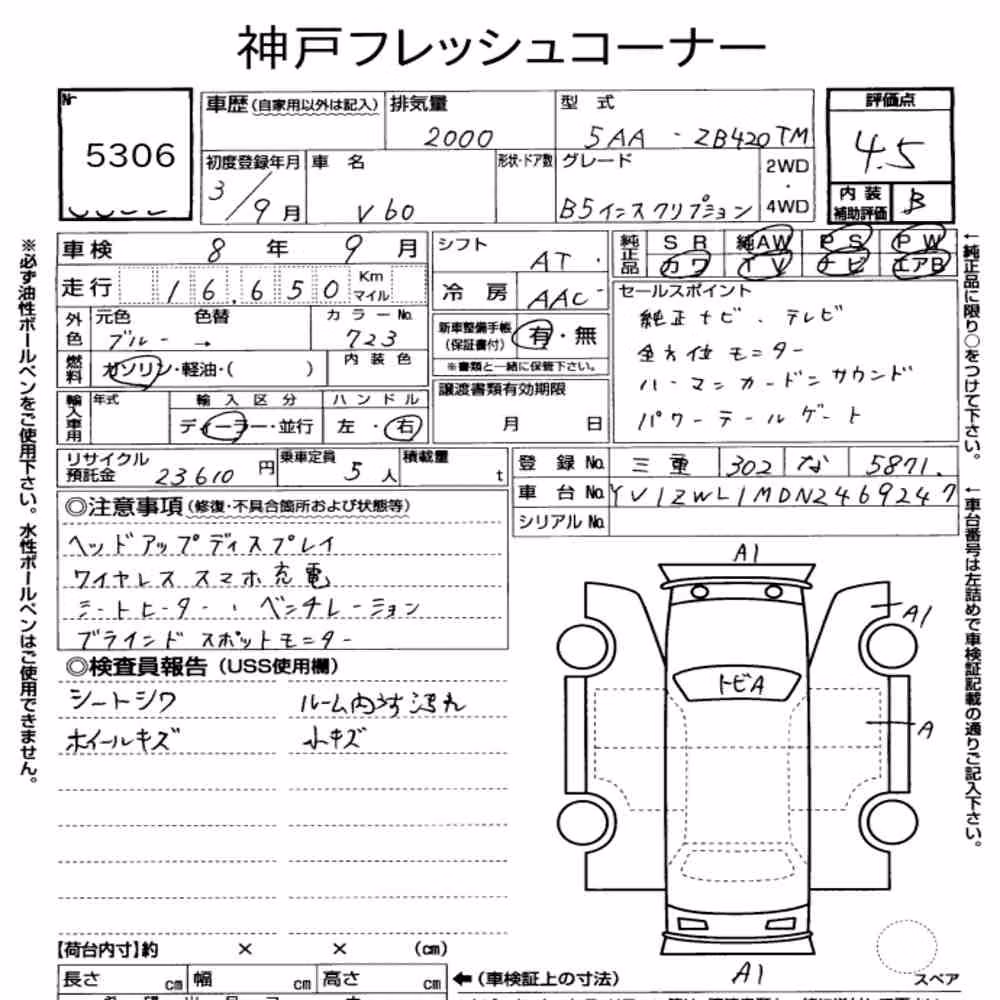 神戸フレッシュコーナー
Nr 5306
車歴(自家用以外は記入) 排気量 2000 型式 5AA - ZB420TM
評価点 4.5
内装補助評価 B
初度登録年月 3/9月 車名 V60 形状・ドア数 グレード B5インスクリプション 2WD・4WD
車検 8年9月
走行 16,650 Km マイル
外色 元色 ブルー → 色替 カラーNo. 723
燃料 ガソリン・軽油・( ) 内装色
輸入車用 年式 輸入区分 ディーラー・並行 ハンドル 左・右
シフト AT
冷房 AAC
新車整備手帳(保証書付) 有・無
※書類と一緒に保管下さい。
譲渡書類有効期限 月 日
純正品 SR 純AW PS PW
カワ TV ナビ エアB
セールスポイント
純正ナビ、テレビ
全方位モニター
ハーマンカードンサウンド
パワーテールゲート
リサイクル預託金 23610円 乗車定員 5人 積載量 t
登録No. 三重 302 な 5871
車台No. YV1ZWL1MDN2469247
シリアルNo.
◎注意事項(修復・不具合箇所および状態等)
ヘッドアップディスプレイ
ワイヤレススマホ充電
シートヒーター、ベンチレーション
ブラインドスポットモニター
◎検査員報告(USS使用欄)
シートシワ ルーム内汚れ
ホイールキズ 小キズ
A1
A1
トビA
A
A1
スペア
【荷台内寸】約 × × (cm)
長さ cm 幅 cm 高さ cm ←(車検証上の寸法)
※必ず油性ボールペンをご使用下さい。水性ボールペンはご使用できません。
←純正品に限り○をつけて下さい。
←車台番号は左詰めで車検証記載の通りご記入下さい。